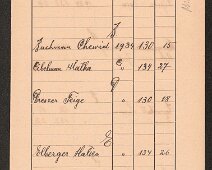 J
Juchman Chewid 1934 130 15
Eibelman Malka " 134 27
P
Presser Feige " 130 18
E
Elberger Matwei " 134 26